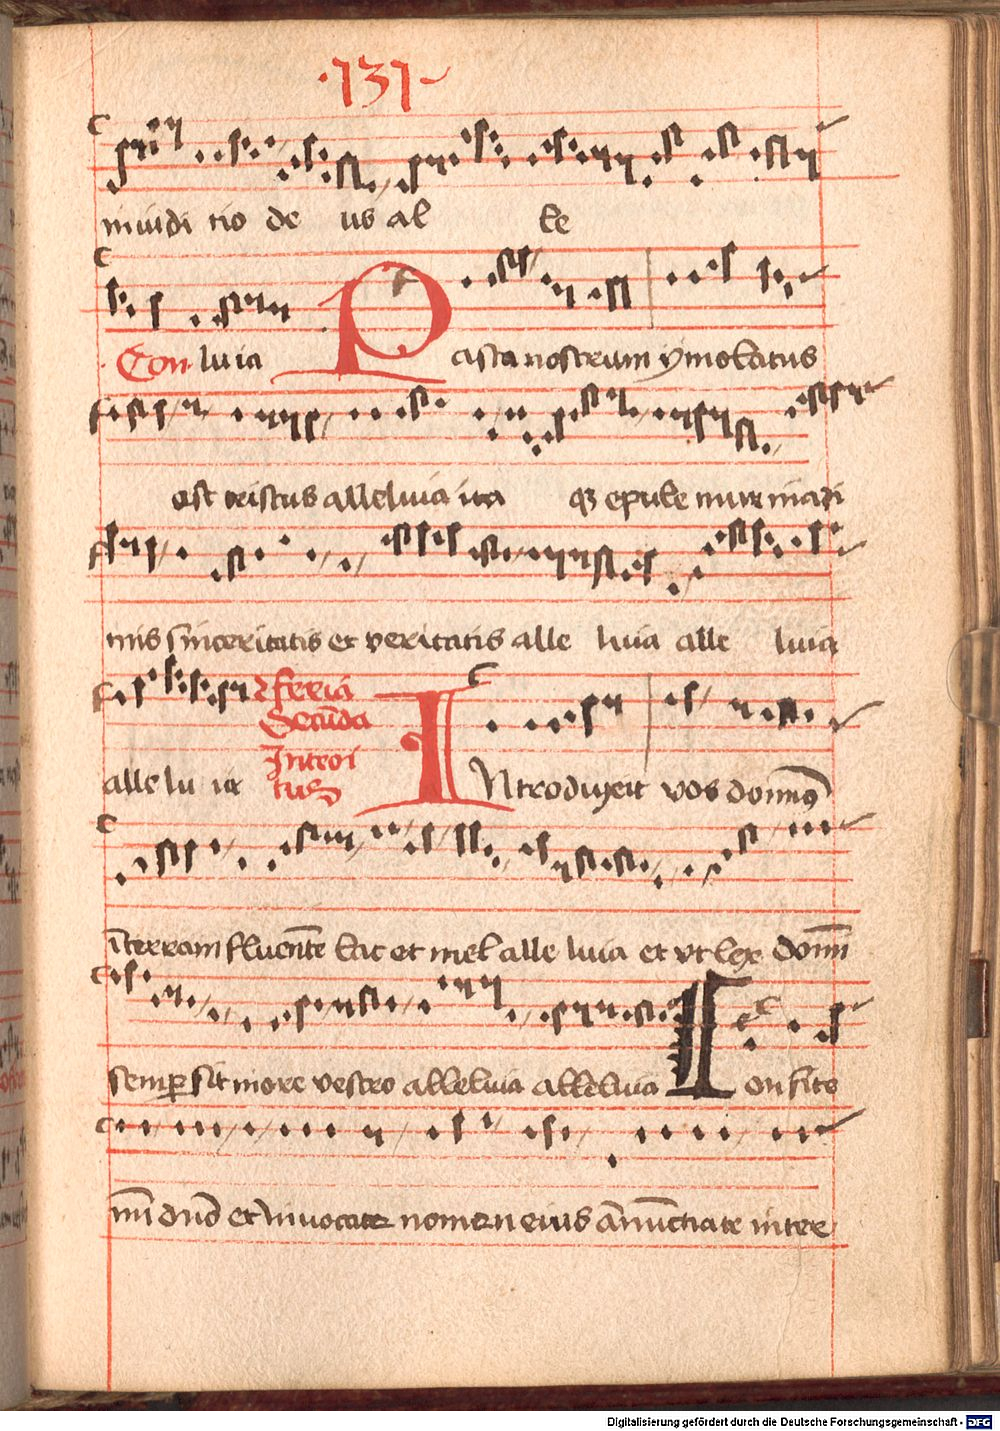 ·131·
in iudi tio de us al le
Con luia Pasca nostrum ymolatus
est cristus alleluia ita q₃ epule mur in azi
mis sinceritatis et veritatis alle luia alle luia
alle lu ia feria
Secūda
Introi
tus
INtroduxit vos domin⁹
ī terram fluentē lac et mel alle luia et vt lex domī
semꝑ sit in ore vestro alleluia allēluia Confite
mī dnō et invocate nomen eius annūctiate inter
Digitalisierung gefördert durch die Deutsche Forschungsgemeinschaft - DFG